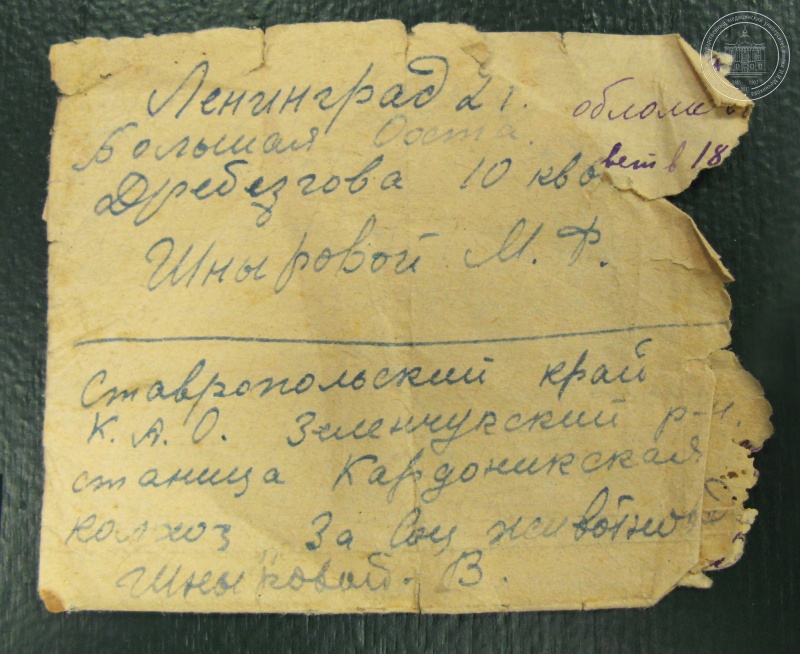 Ленинград 21.
Большая Оста
Дребезгова 10 кв
Шныровой М. Ф.
облом
вет в 18
Ставропольский край
К. А. О. Зеленчукский р-н.
станица Кардоникская
колхоз За Соц животно
Шныровой. В.